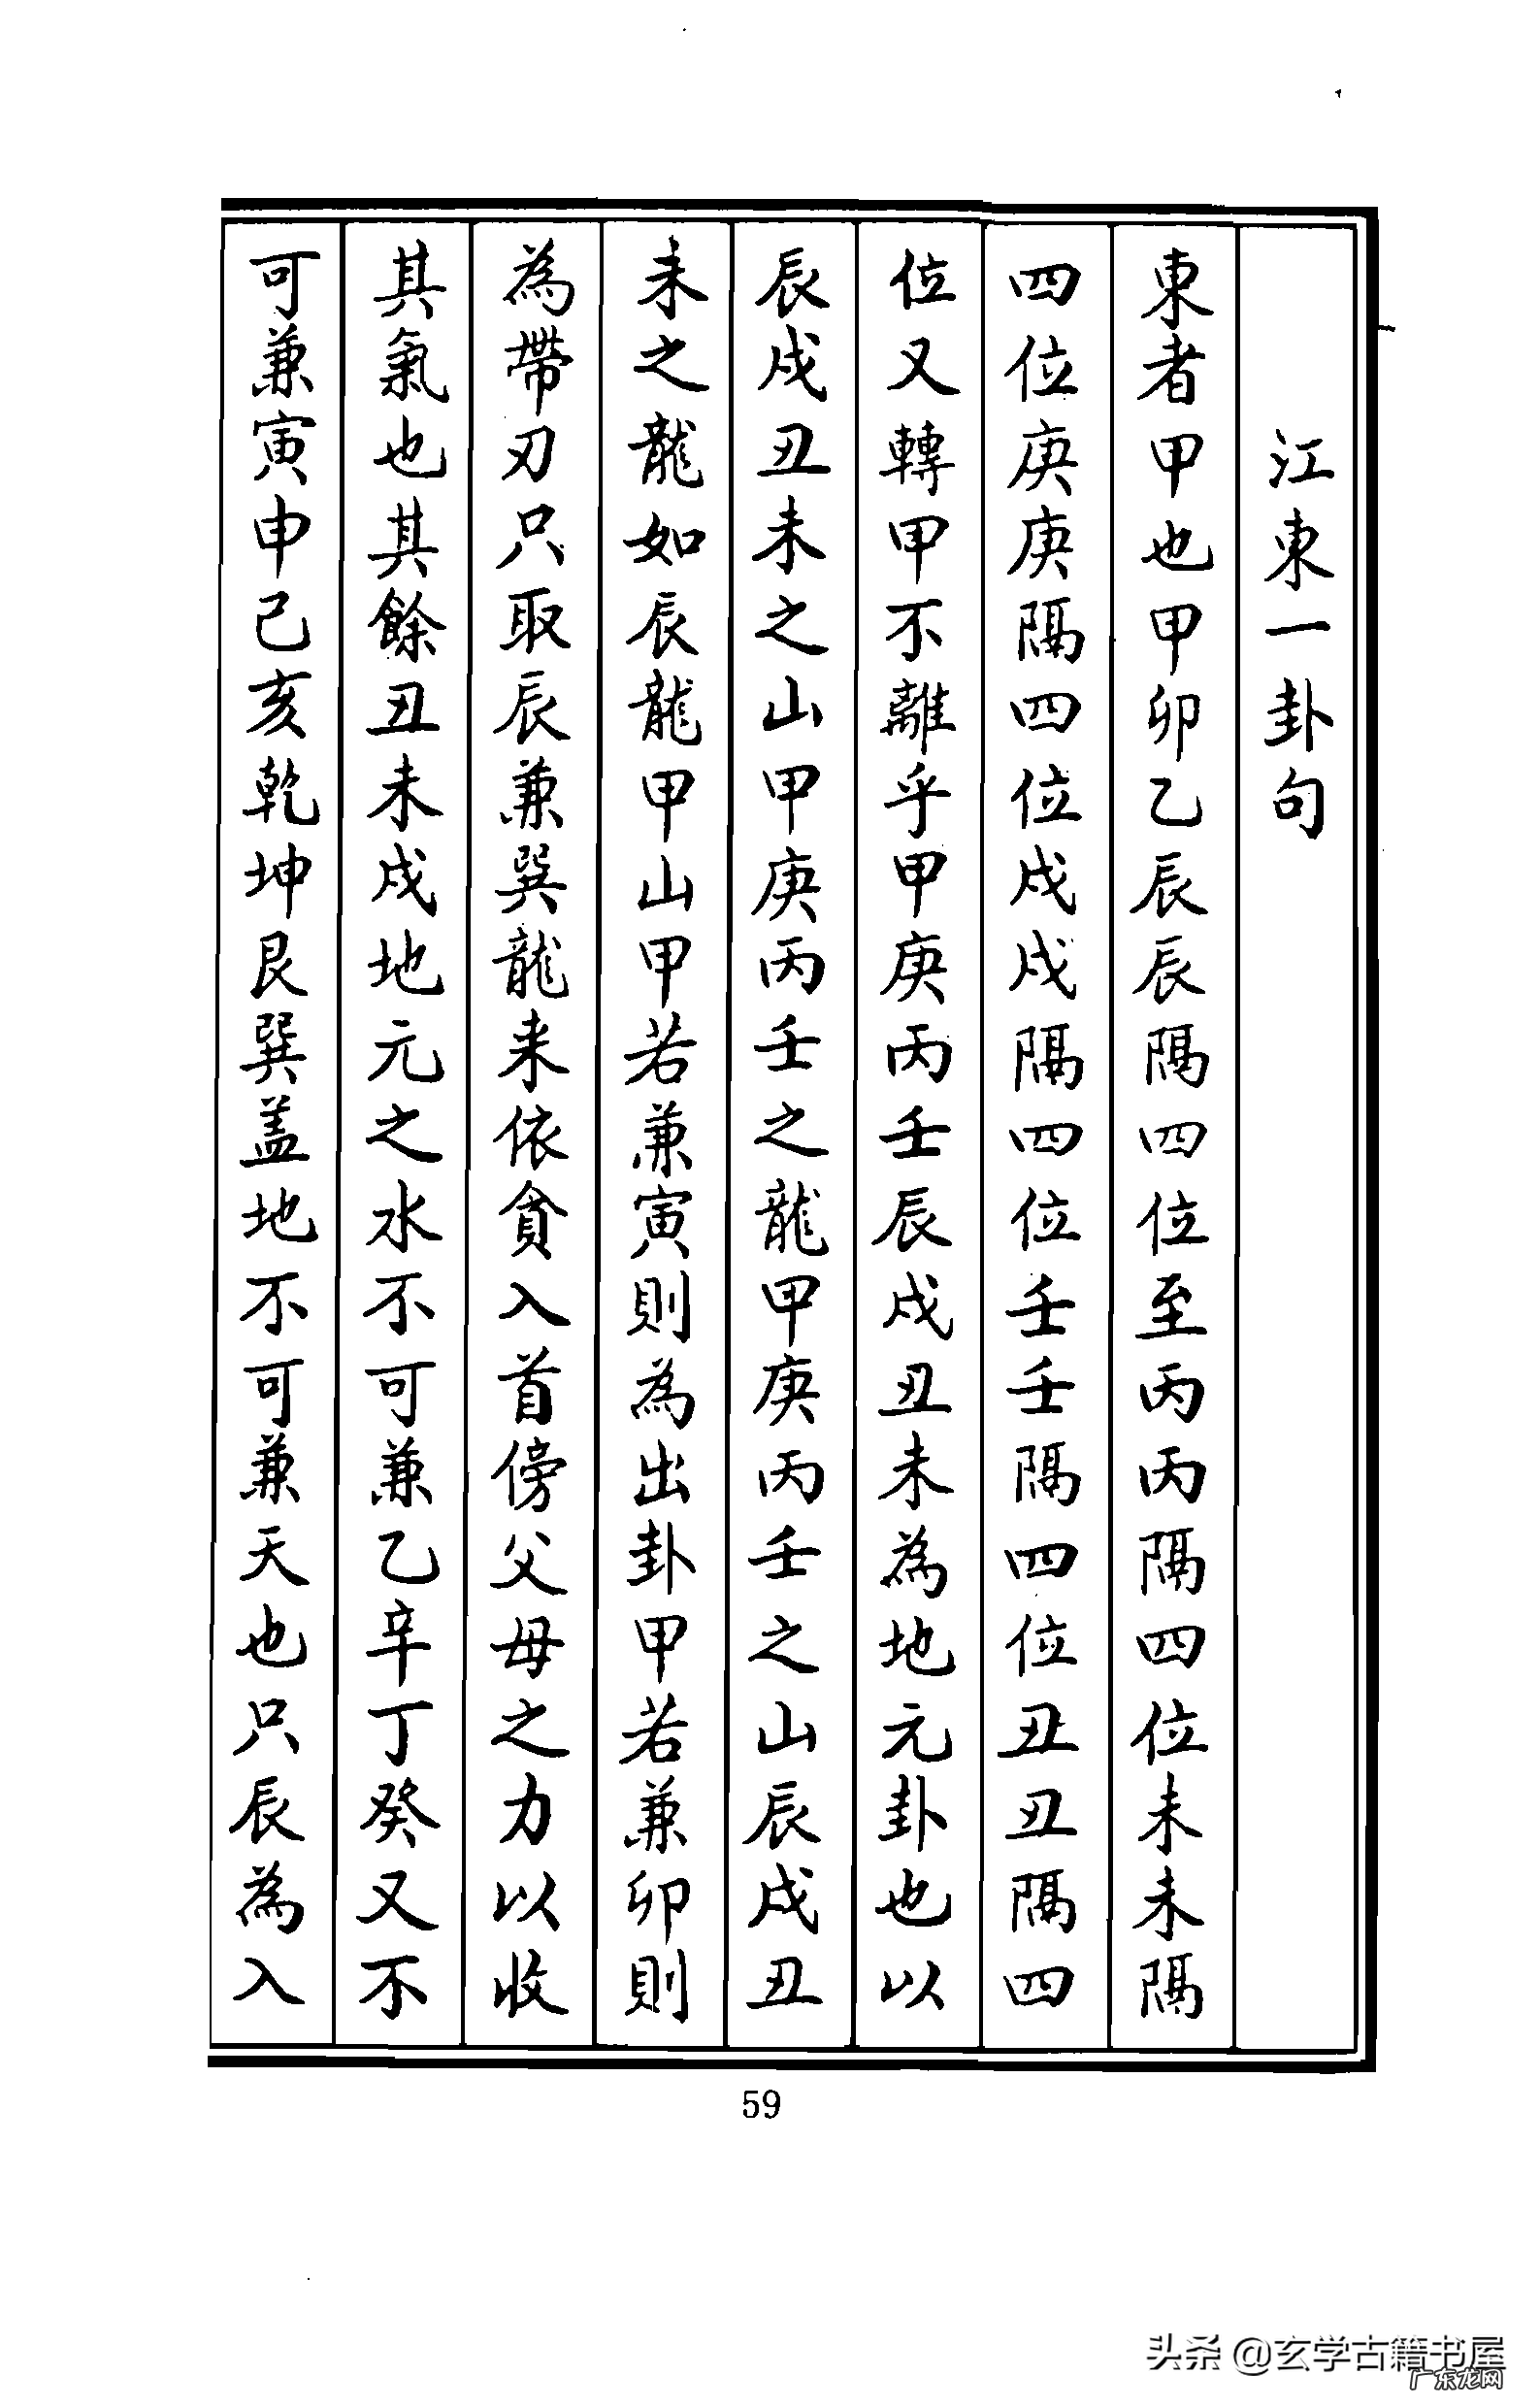 江東一卦句
東者甲也甲卯乙辰辰隔四位至丙丙隔四位未未隔
四位庚庚隔四位戍戍隔四位壬壬隔四位丑丑隔四
位又轉甲不離乎甲甲庚丙壬辰戍丑未為地元卦也以
辰戍丑未之山甲庚丙壬之龍甲庚丙壬之山辰戍丑
未之龍如辰龍甲山甲若兼寅則為出卦甲若兼卯則
為帶刃只取辰兼巽龍来依貪入首傍父母之力以收
其氣也其餘丑未戍地元之水不可兼乙辛丁癸又不
可兼寅申己亥乾坤艮巽盖地不可兼天也只辰為入
59
头条 @玄学古籍书屋
广东龙网